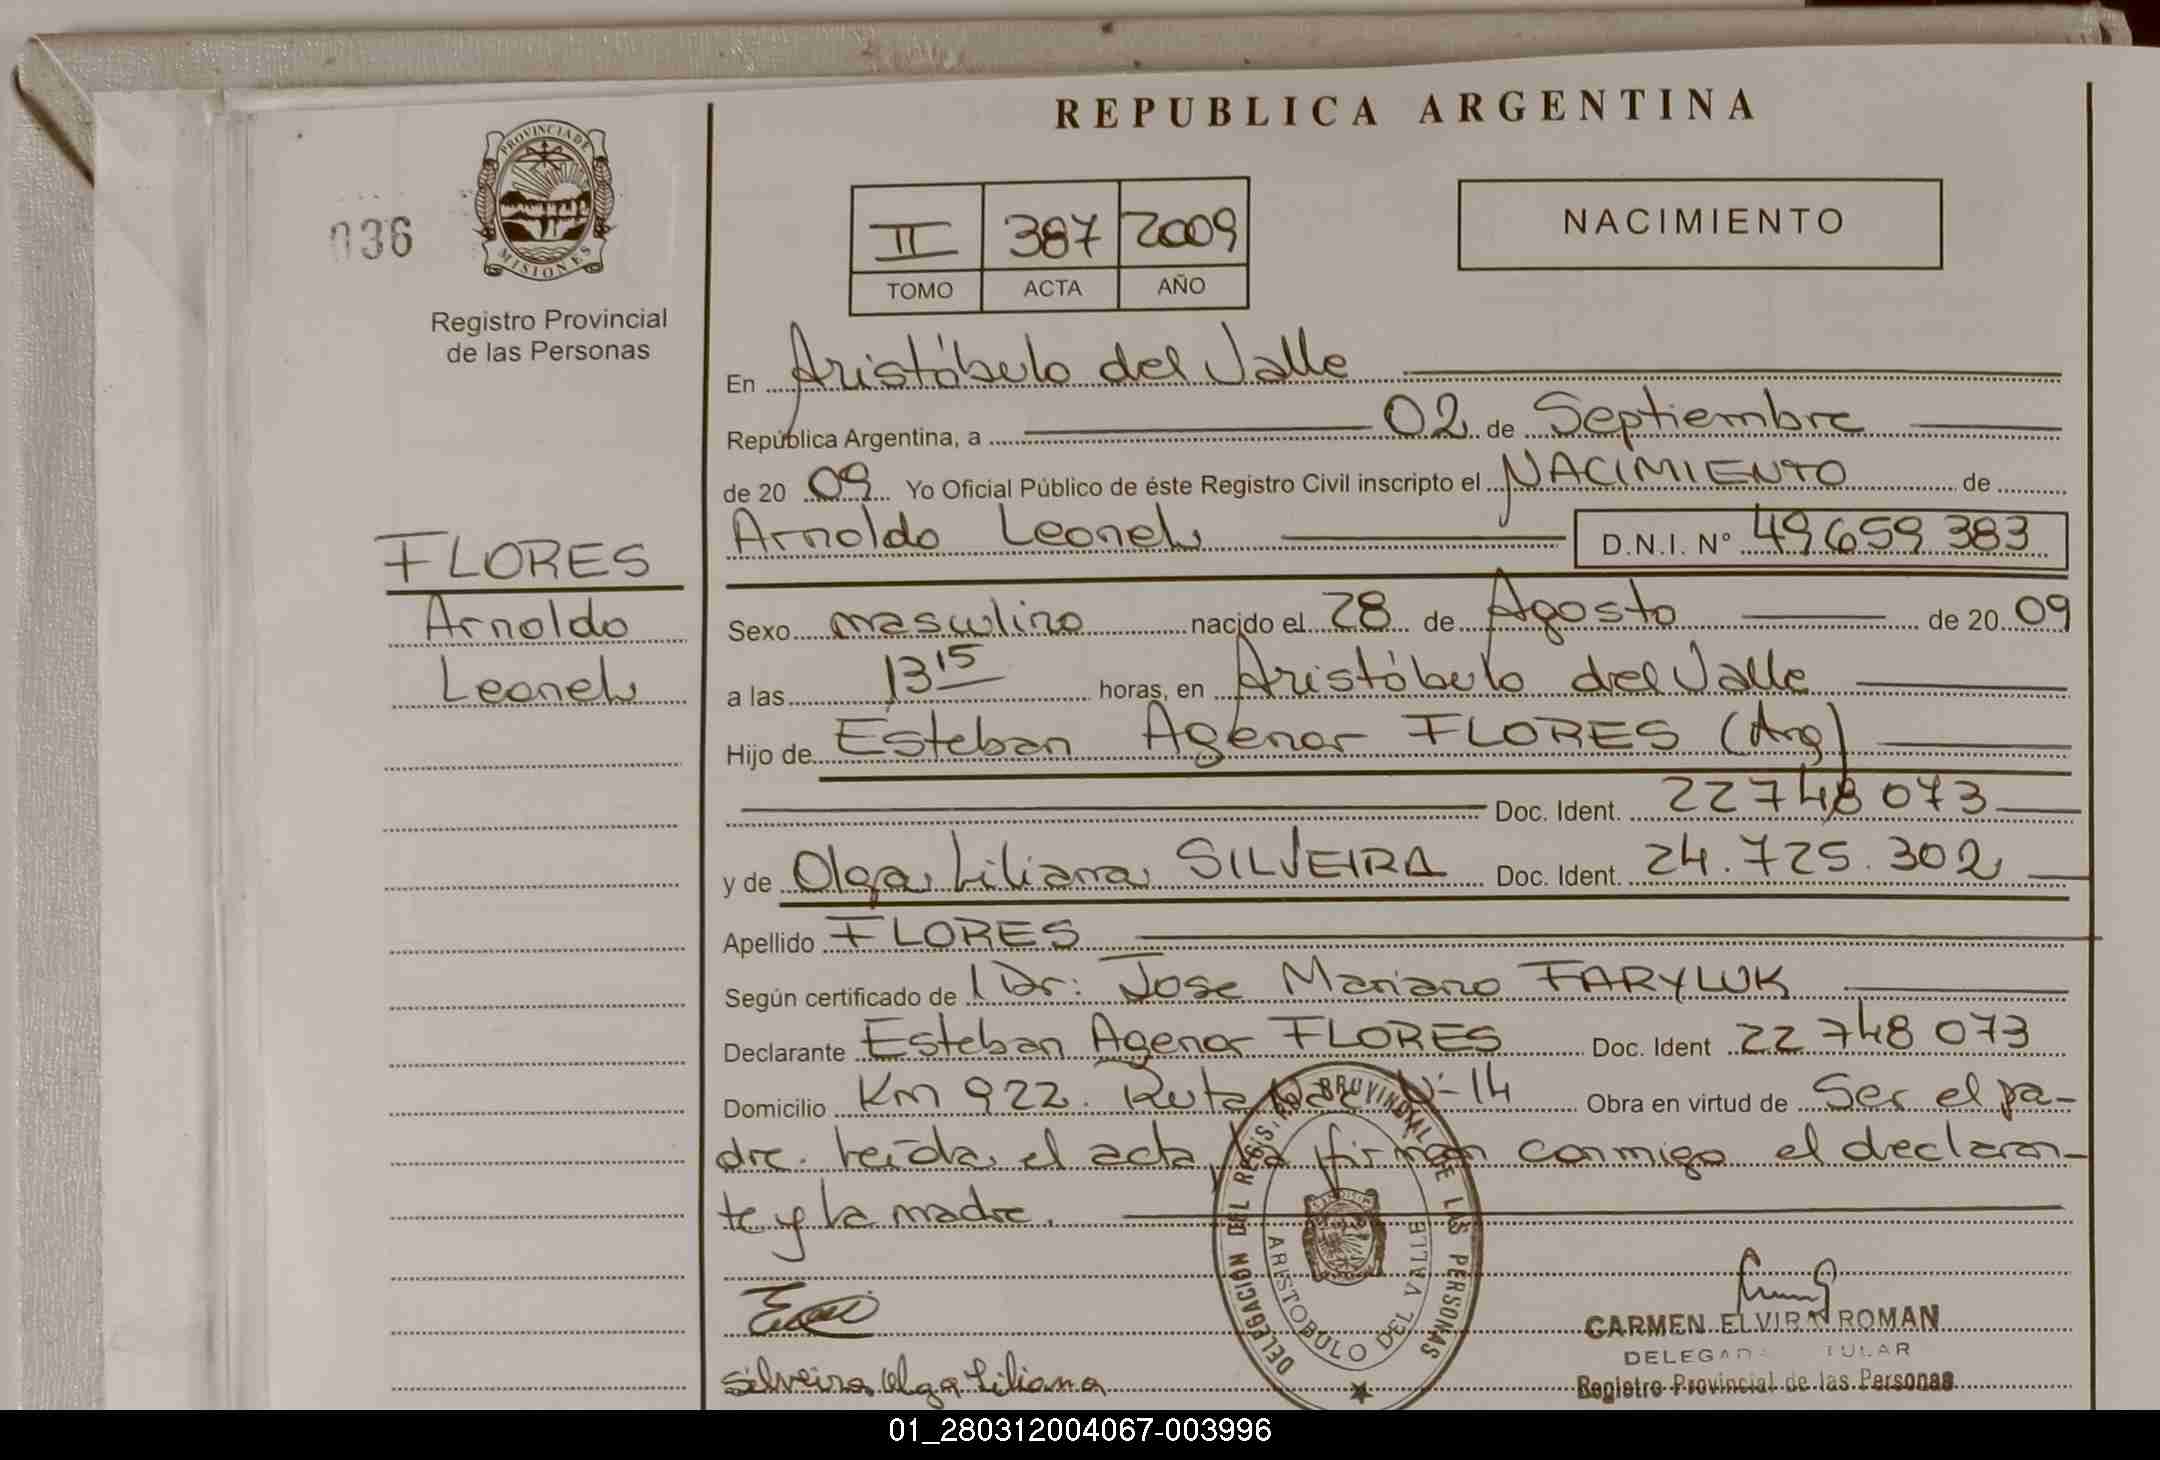 REPUBLICA ARGENTINA
036
PROVINCIA DE
MISIONES
Registro Provincial
de las Personas
II 387 2009
TOMO ACTA AÑO
NACIMIENTO
FLORES
Arnoldo
Leonel
En Aristóbulo del Valle
República Argentina, a 02 de Septiembre
de 20 09 Yo Oficial Público de éste Registro Civil inscripto el NACIMIENTO de
Arnoldo Leonel D.N.I. N° 49.659 383
Sexo masculino nacido el 28 de Agosto de 20 09
a las 13 15 horas, en Aristóbulo del Valle
Hijo de Esteban Agenor FLORES (Arg)
Doc. Ident. 22 748 073
y de Olga Liliana SILVEIRA Doc. Ident. 24.725.302
Apellido FLORES
Según certificado de Dr: Jose Mariano FARYLUK
Declarante Esteban Agenor FLORES Doc. Ident 22 748 073
Domicilio Km 922. Ruta Nac N° 14 Obra en virtud de Ser el pa-
dre. Leída el acta, la firman conmigo el declaran-
te y la madre.
DELEGACION DEL REGIS. PROVINCIAL DE LAS PERSONAS
ARISTOBULO DEL VALLE
Silveira Olga Liliana
CARMEN ELVIRA ROMAN
Registro Provincial de las Personas
01_280312004067-003996